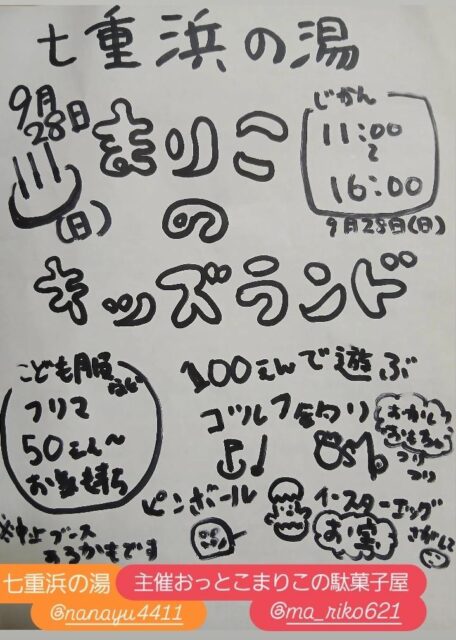 七重浜の湯
9月
28日
(日)
まりこ
の
キッズランド
じかん
11:00
〜
16:00
9月28日(日)
こども服
など
フリマ
50えん〜
お気持ち
100えんで遊ぶ
ゴルフ 釣り
おかし
おもちゃ
つり
ピンボール
イースターエッグ
お宝
さがして
※中止ブース
あるかもです
七重浜の湯
@nanayu4411
主催おっとこまりこの駄菓子屋
@ma_riko621